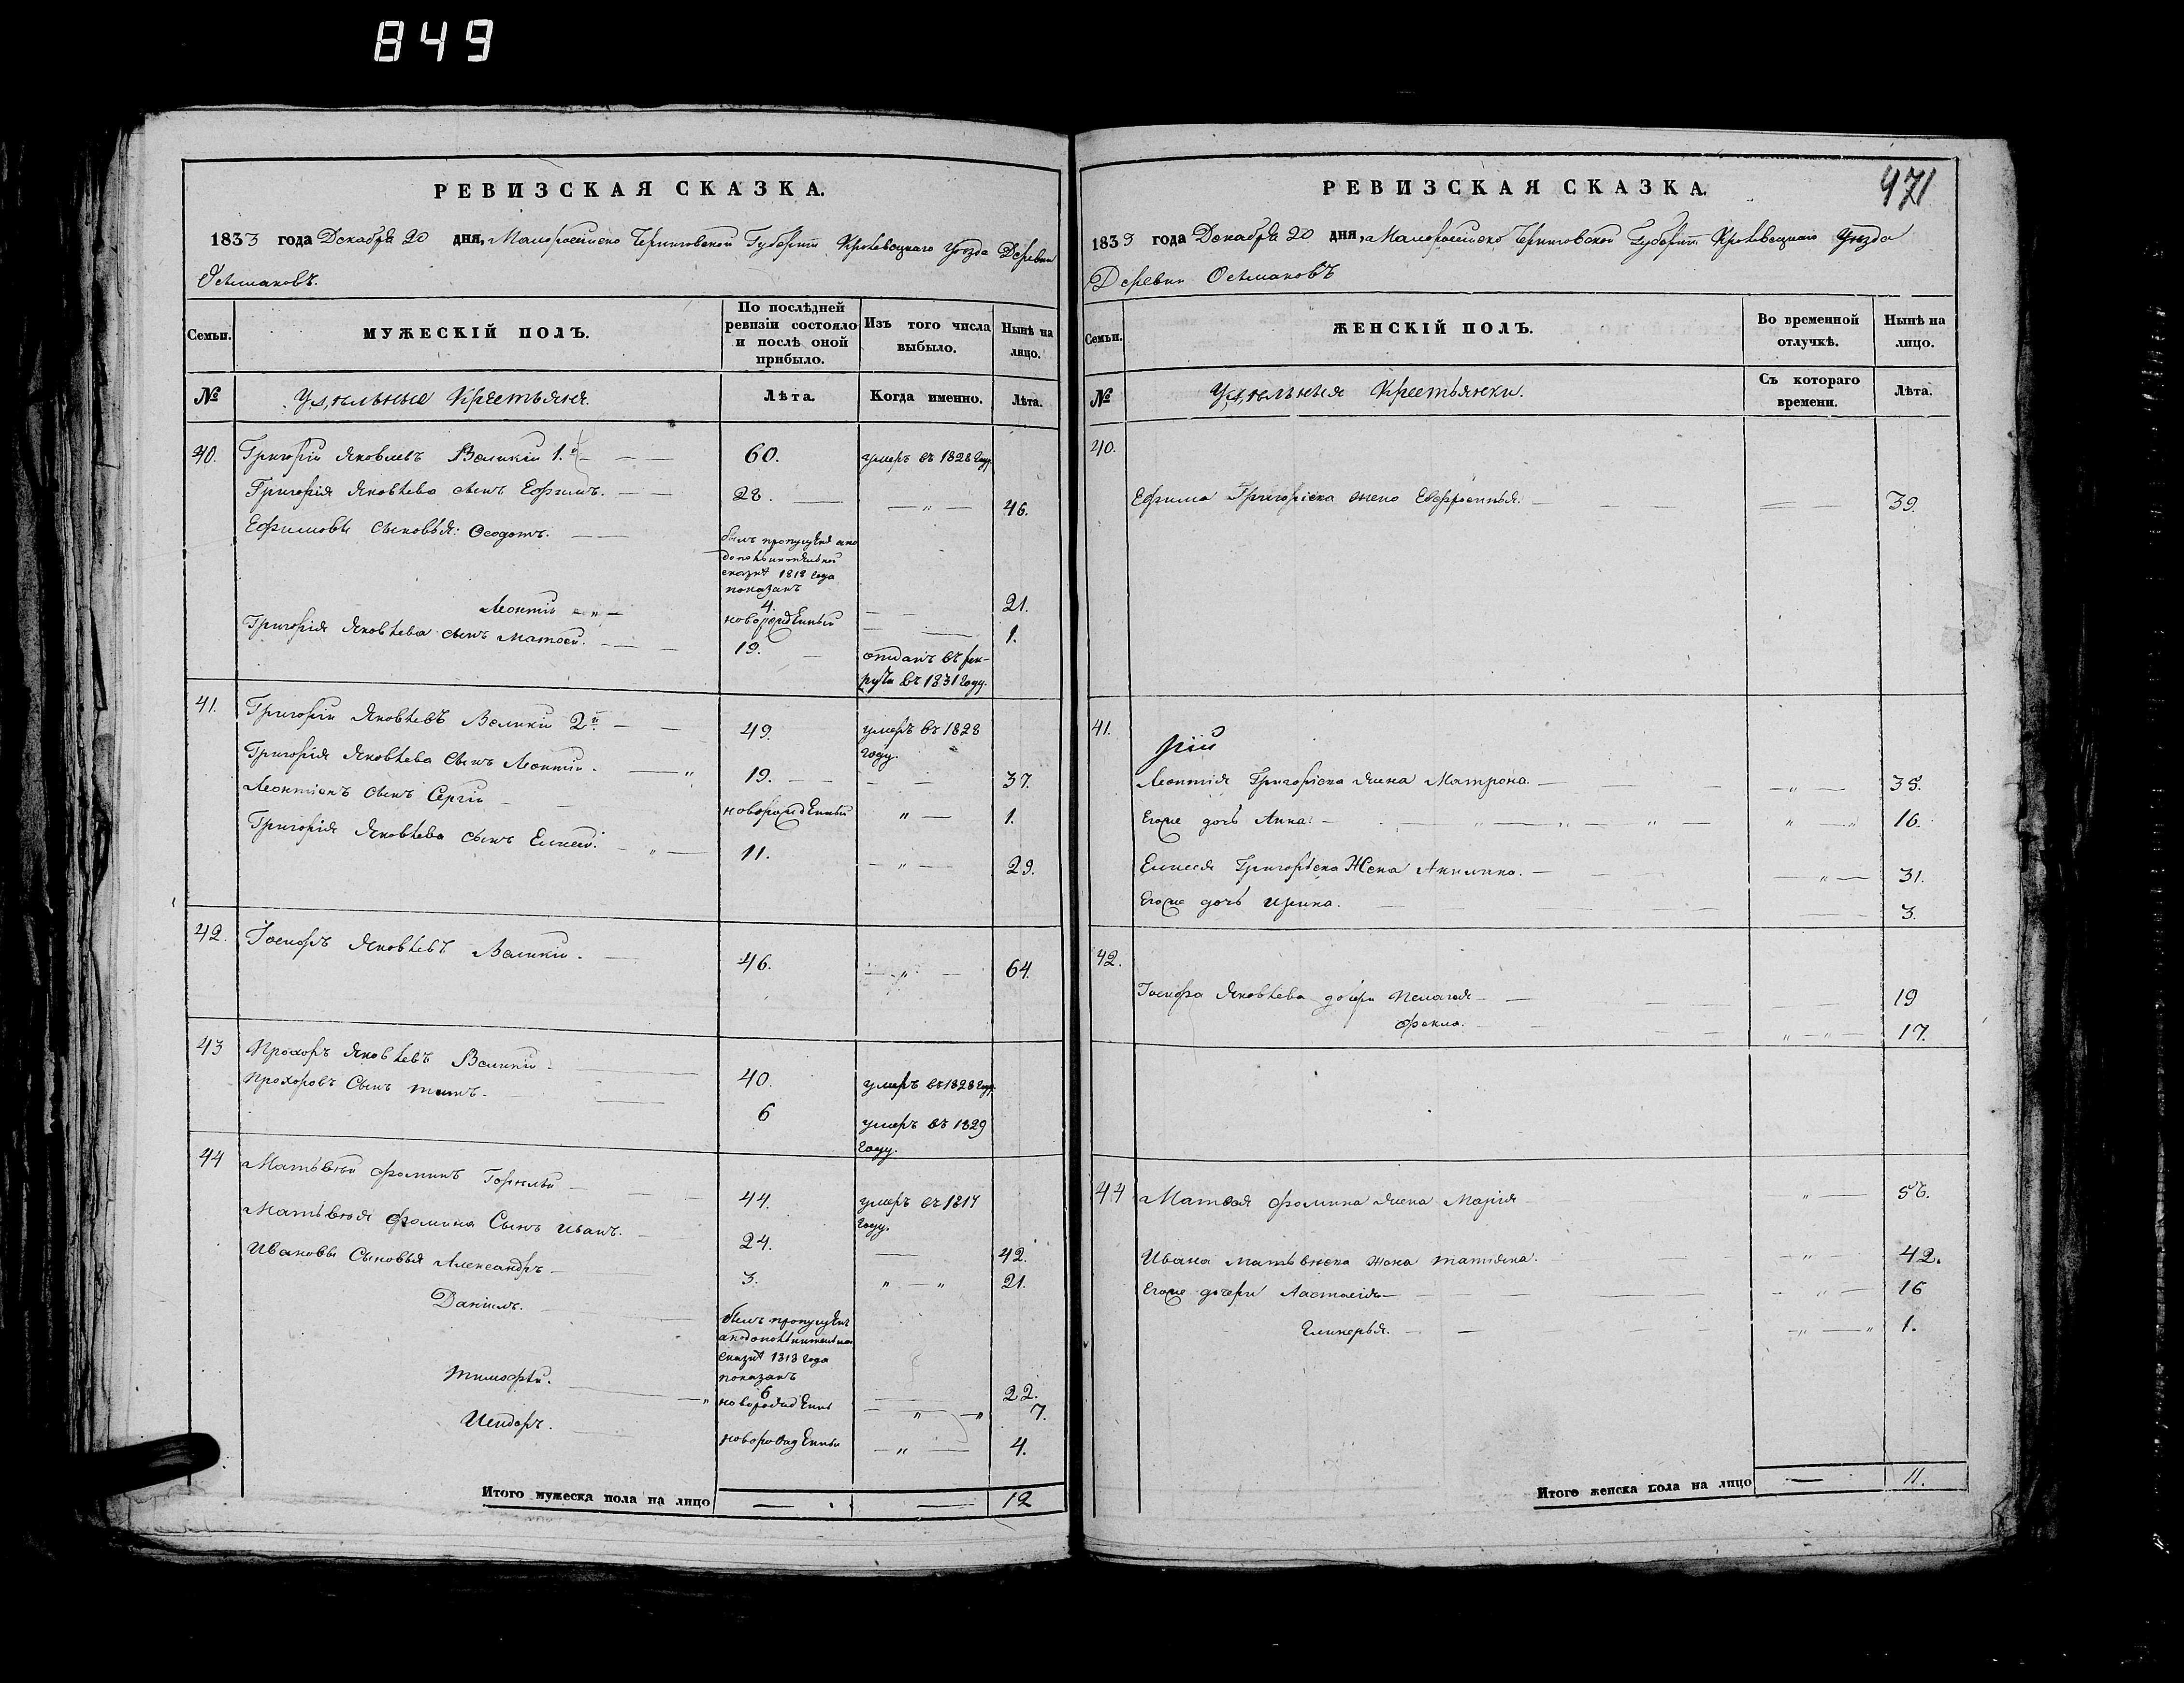 849
РЕВИЗСКАЯ СКАЗКА.
1833 года Декабря 20 дня, Малороссійско Черниговской Губерніи Кролевецкаго Уѣзда Деревни
Семьи.
МУЖЕСКІЙ ПОЛЪ.
По послѣдней ревизіи состояло и послѣ оной прибыло.
Изъ того числа выбыло.
Нынѣ на лицо.
№ Удѣльные Крестьяня. Лѣта. Когда именно. Лѣта.
40. Григорій Яковлевъ Великій 1.й 60. умеръ въ 1828 году
Григорія Яковлева сынъ Ефимъ. 28. 46.
Ефимовы сыновья: Ѳеодотъ. былъ пропущенъ а по
дополнительной
сказкѣ 1818 года
показанъ
4. 21.
Леонтій новорожденный 1.
Григорія Яковлева сынъ Матвей. 19. отданъ въ рек-
руты въ 1831 году.
41. Григорій Яковлевъ Великій 2й 49. умеръ въ 1828
году.
Григорія Яковлева Сынъ Леонтій. 19. 37.
Леонтіевъ сынъ Сергій новорожденный 1.
Григорія Яковлева сынъ Елисей. 11. 29.
42. Іосифъ Яковлевъ Великій. 46. 64.
43 Прохоръ Яковлевъ Великій 40. умеръ въ 1828 году
Прохоровъ Сынъ Титъ. 6 умеръ въ 1829
году.
44 Матвѣй Ѳоминъ 44. умеръ въ 1817
году.
Матвѣя Ѳомина Сынъ Иванъ. 24. 42.
Ивановы Сыновья Александръ 3. 21.
Даніилъ. былъ пропущенъ
а по дополнительной
сказкѣ 1818 года
показанъ
6 22.
Тимофѣй. новорожденный 7.
Исидоръ. новорожденный 4.
Итого мужеска пола на лицо 12
РЕВИЗСКАЯ СКАЗКА.
471
1833 года Декабря 20 дня, Малороссійско Черниговской Губерніи Кролевецкаго Уѣзда
Деревни
Семьи.
ЖЕНСКІЙ ПОЛЪ.
Во временной отлучкѣ.
Нынѣ на лицо.
№ Удѣльныя Крестьянки. Съ котораго времени. Лѣта.
40.
Ефима Григоріева жена Евфросинья. 39.
41.
рій
Леонтія Григоріева жена Матрона. 35.
Егоже дочь Анна. 16.
Елисея Григорьева Жена Акилина. 31.
Егоже дочь Ирина. 3.
42.
Іосифа Яковлева дочери Пелагея 19
Ѳекла. 17.
44 Матвея Ѳомина жена Марія 56.
Ивана Матвѣева жена Татіяна. 42.
Егоже дочери Анастасія 16
Гликерья. 1.
Итого женска пола на лицо 11.